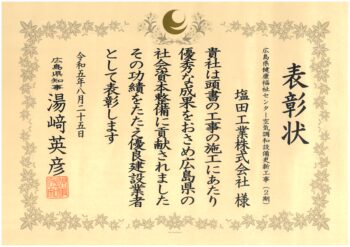 表彰状
広島県健康福祉センター空気調和設備更新工事(2期)
塩田工業株式会社 様
貴社は頭書の工事の施工にあたり
優秀な成果をおさめ広島県の
社会資本整備に貢献されました
その功績をたたえ優良建設業者
として表彰します
令和五年八月二十五日
広島県知事 湯﨑英彦